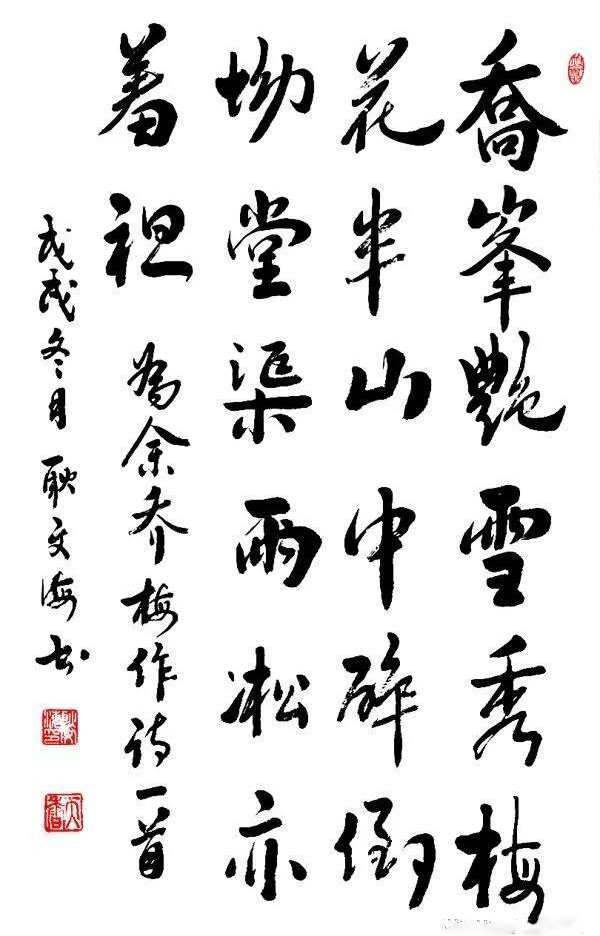 喬峯艷雪秀梅
花半山中醉倒
坳堂渠雨凇亦
羞袒 為余喬梅作詩一首
戊戌冬月耿文海书